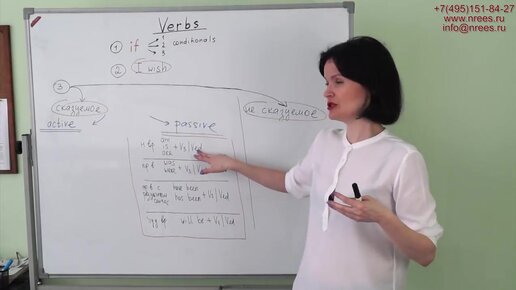 +7(495)151-84-27
www.nrees.ru
info@nrees.ru
Verbs
① if 1 2 3 conditionals
② I wish
③
сказуемое
не сказуемое
active
passive
н вр am is are + V3 | Ved
пр в was were + V3 | Ved
have been has been + V3 | Ved
буд вр will be + V3 | Ved